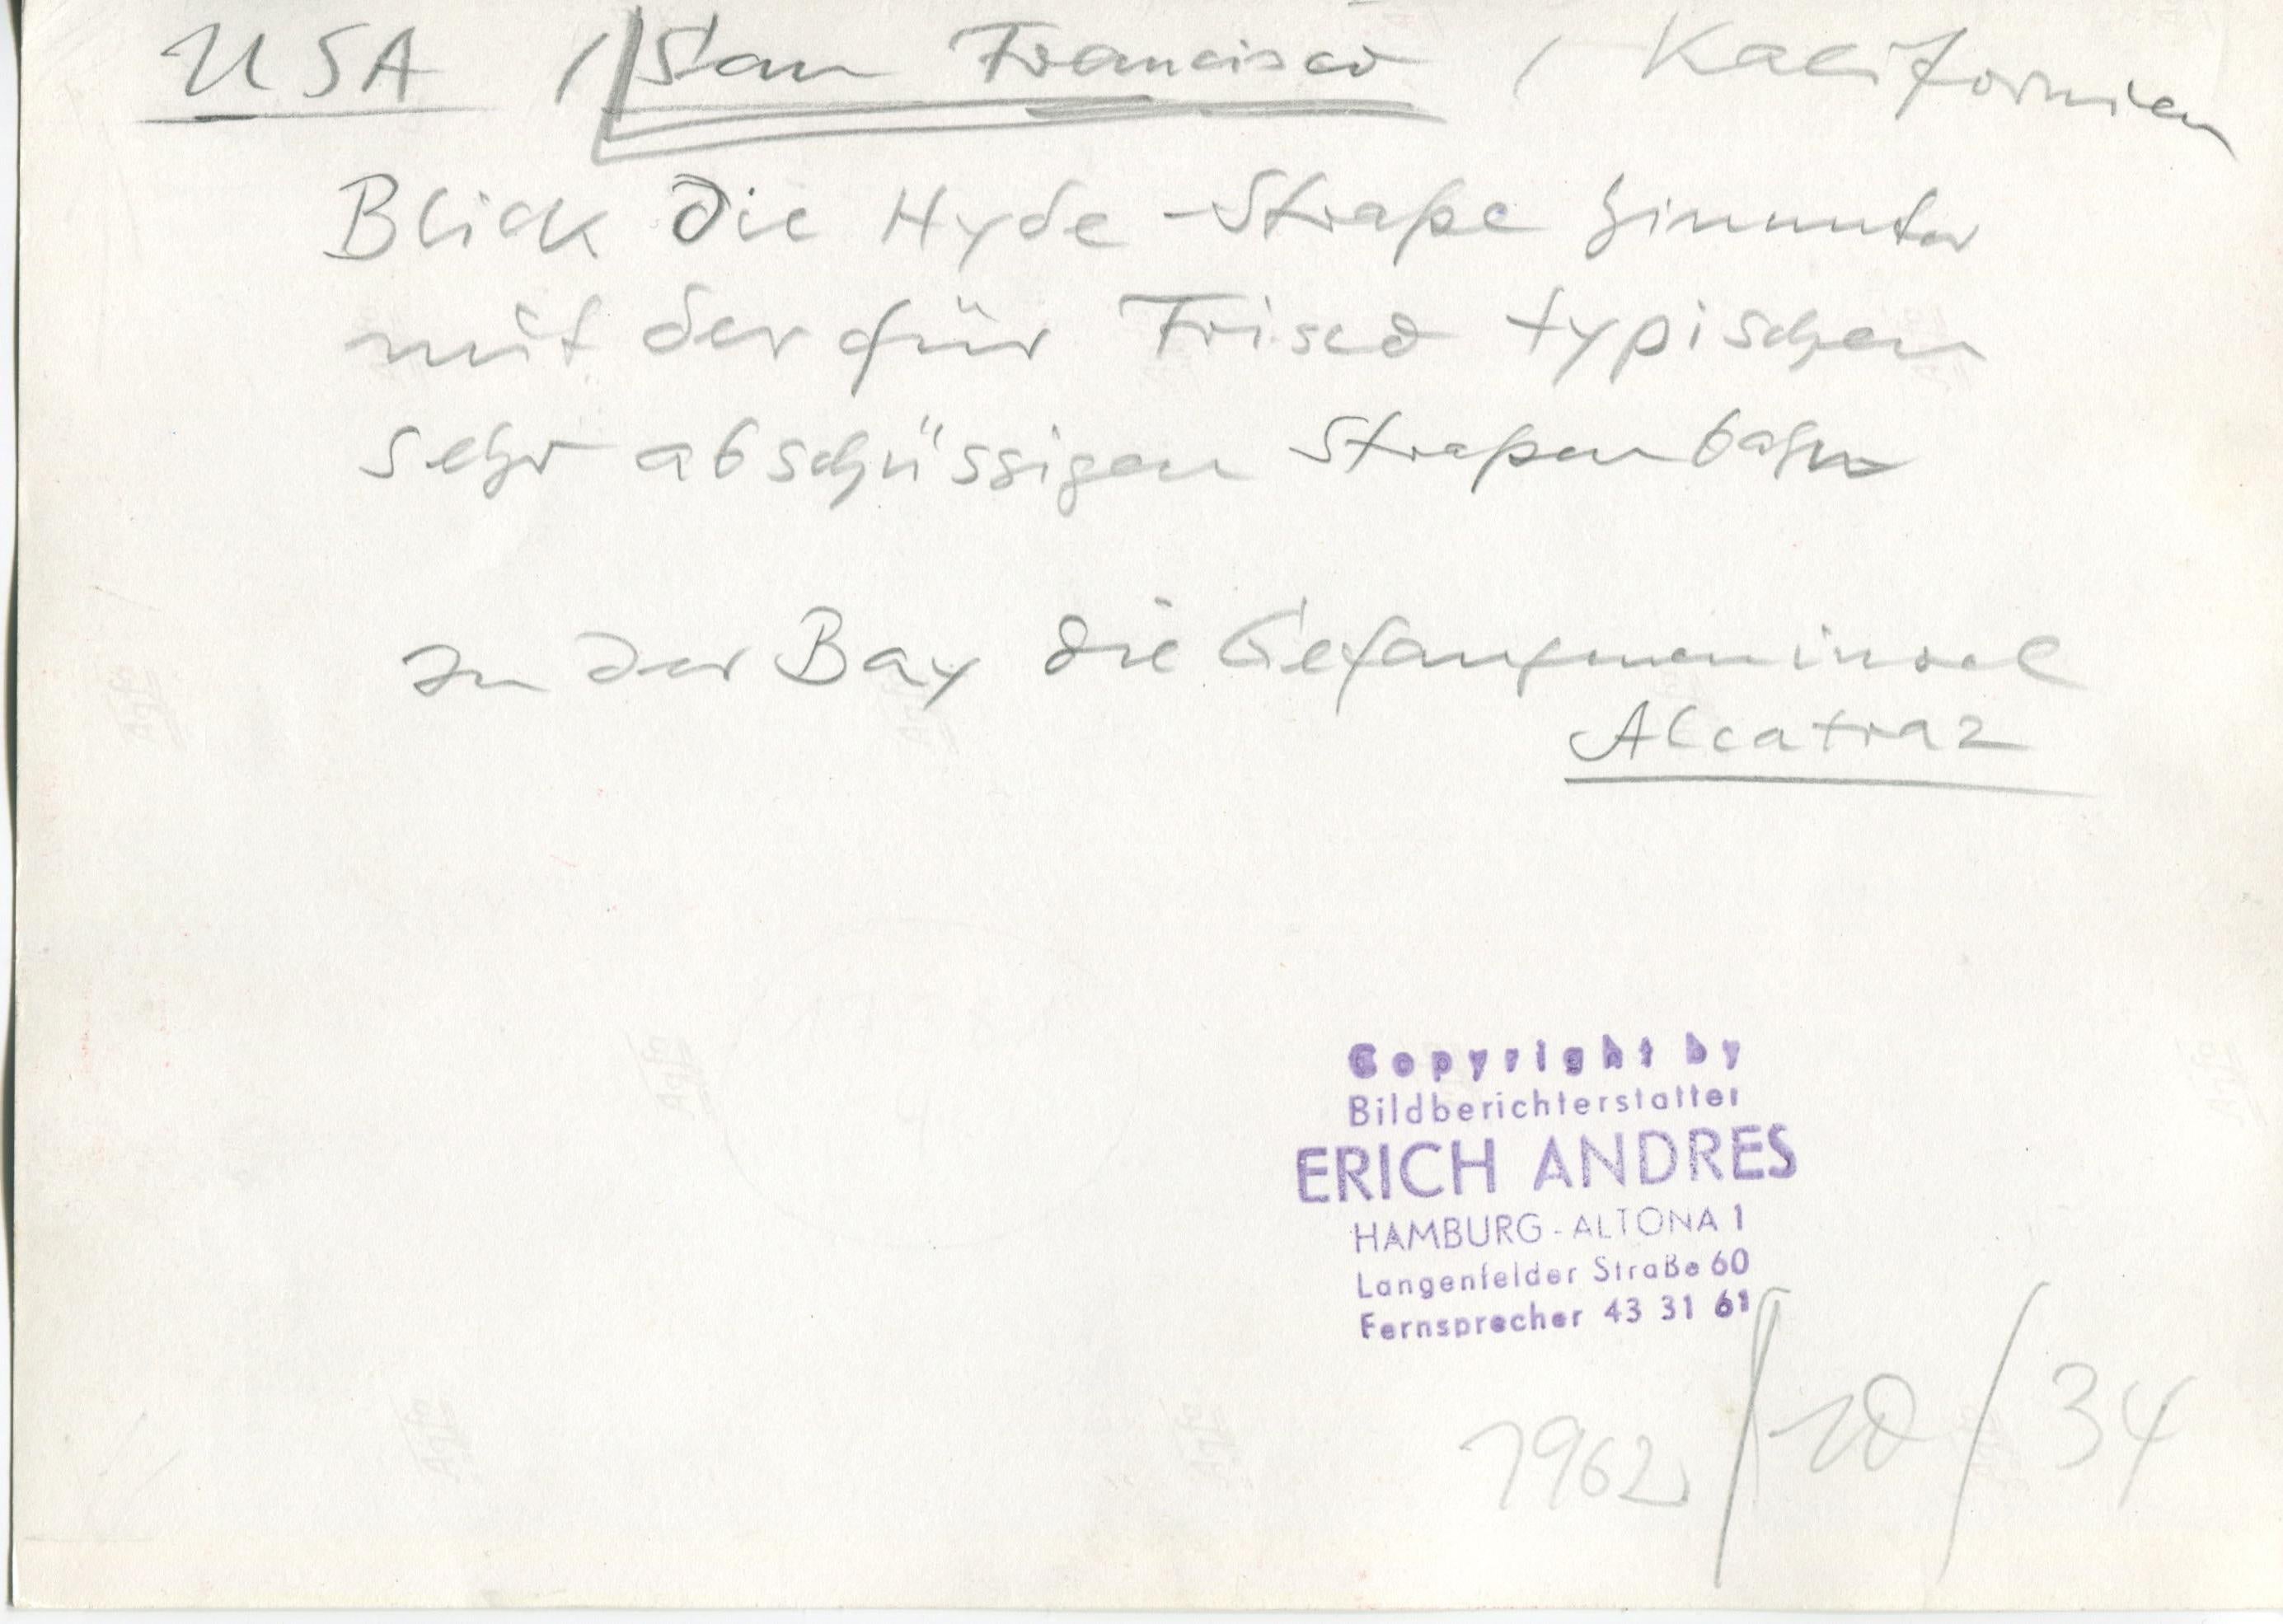 USA / San Francisco / Kalifornien
Blick die Hyde-Straße hinunter
mit der für Frisco typischen
sehr abschüssigen Straßenbahn
In der Bay die Gefangeneninsel
Alcatraz
Copyright by
Bildberichterstatter
ERICH ANDRES
HAMBURG-ALTONA 1
Langenfelder Straße 60
Fernsprecher 43 31 61
1962/10/34